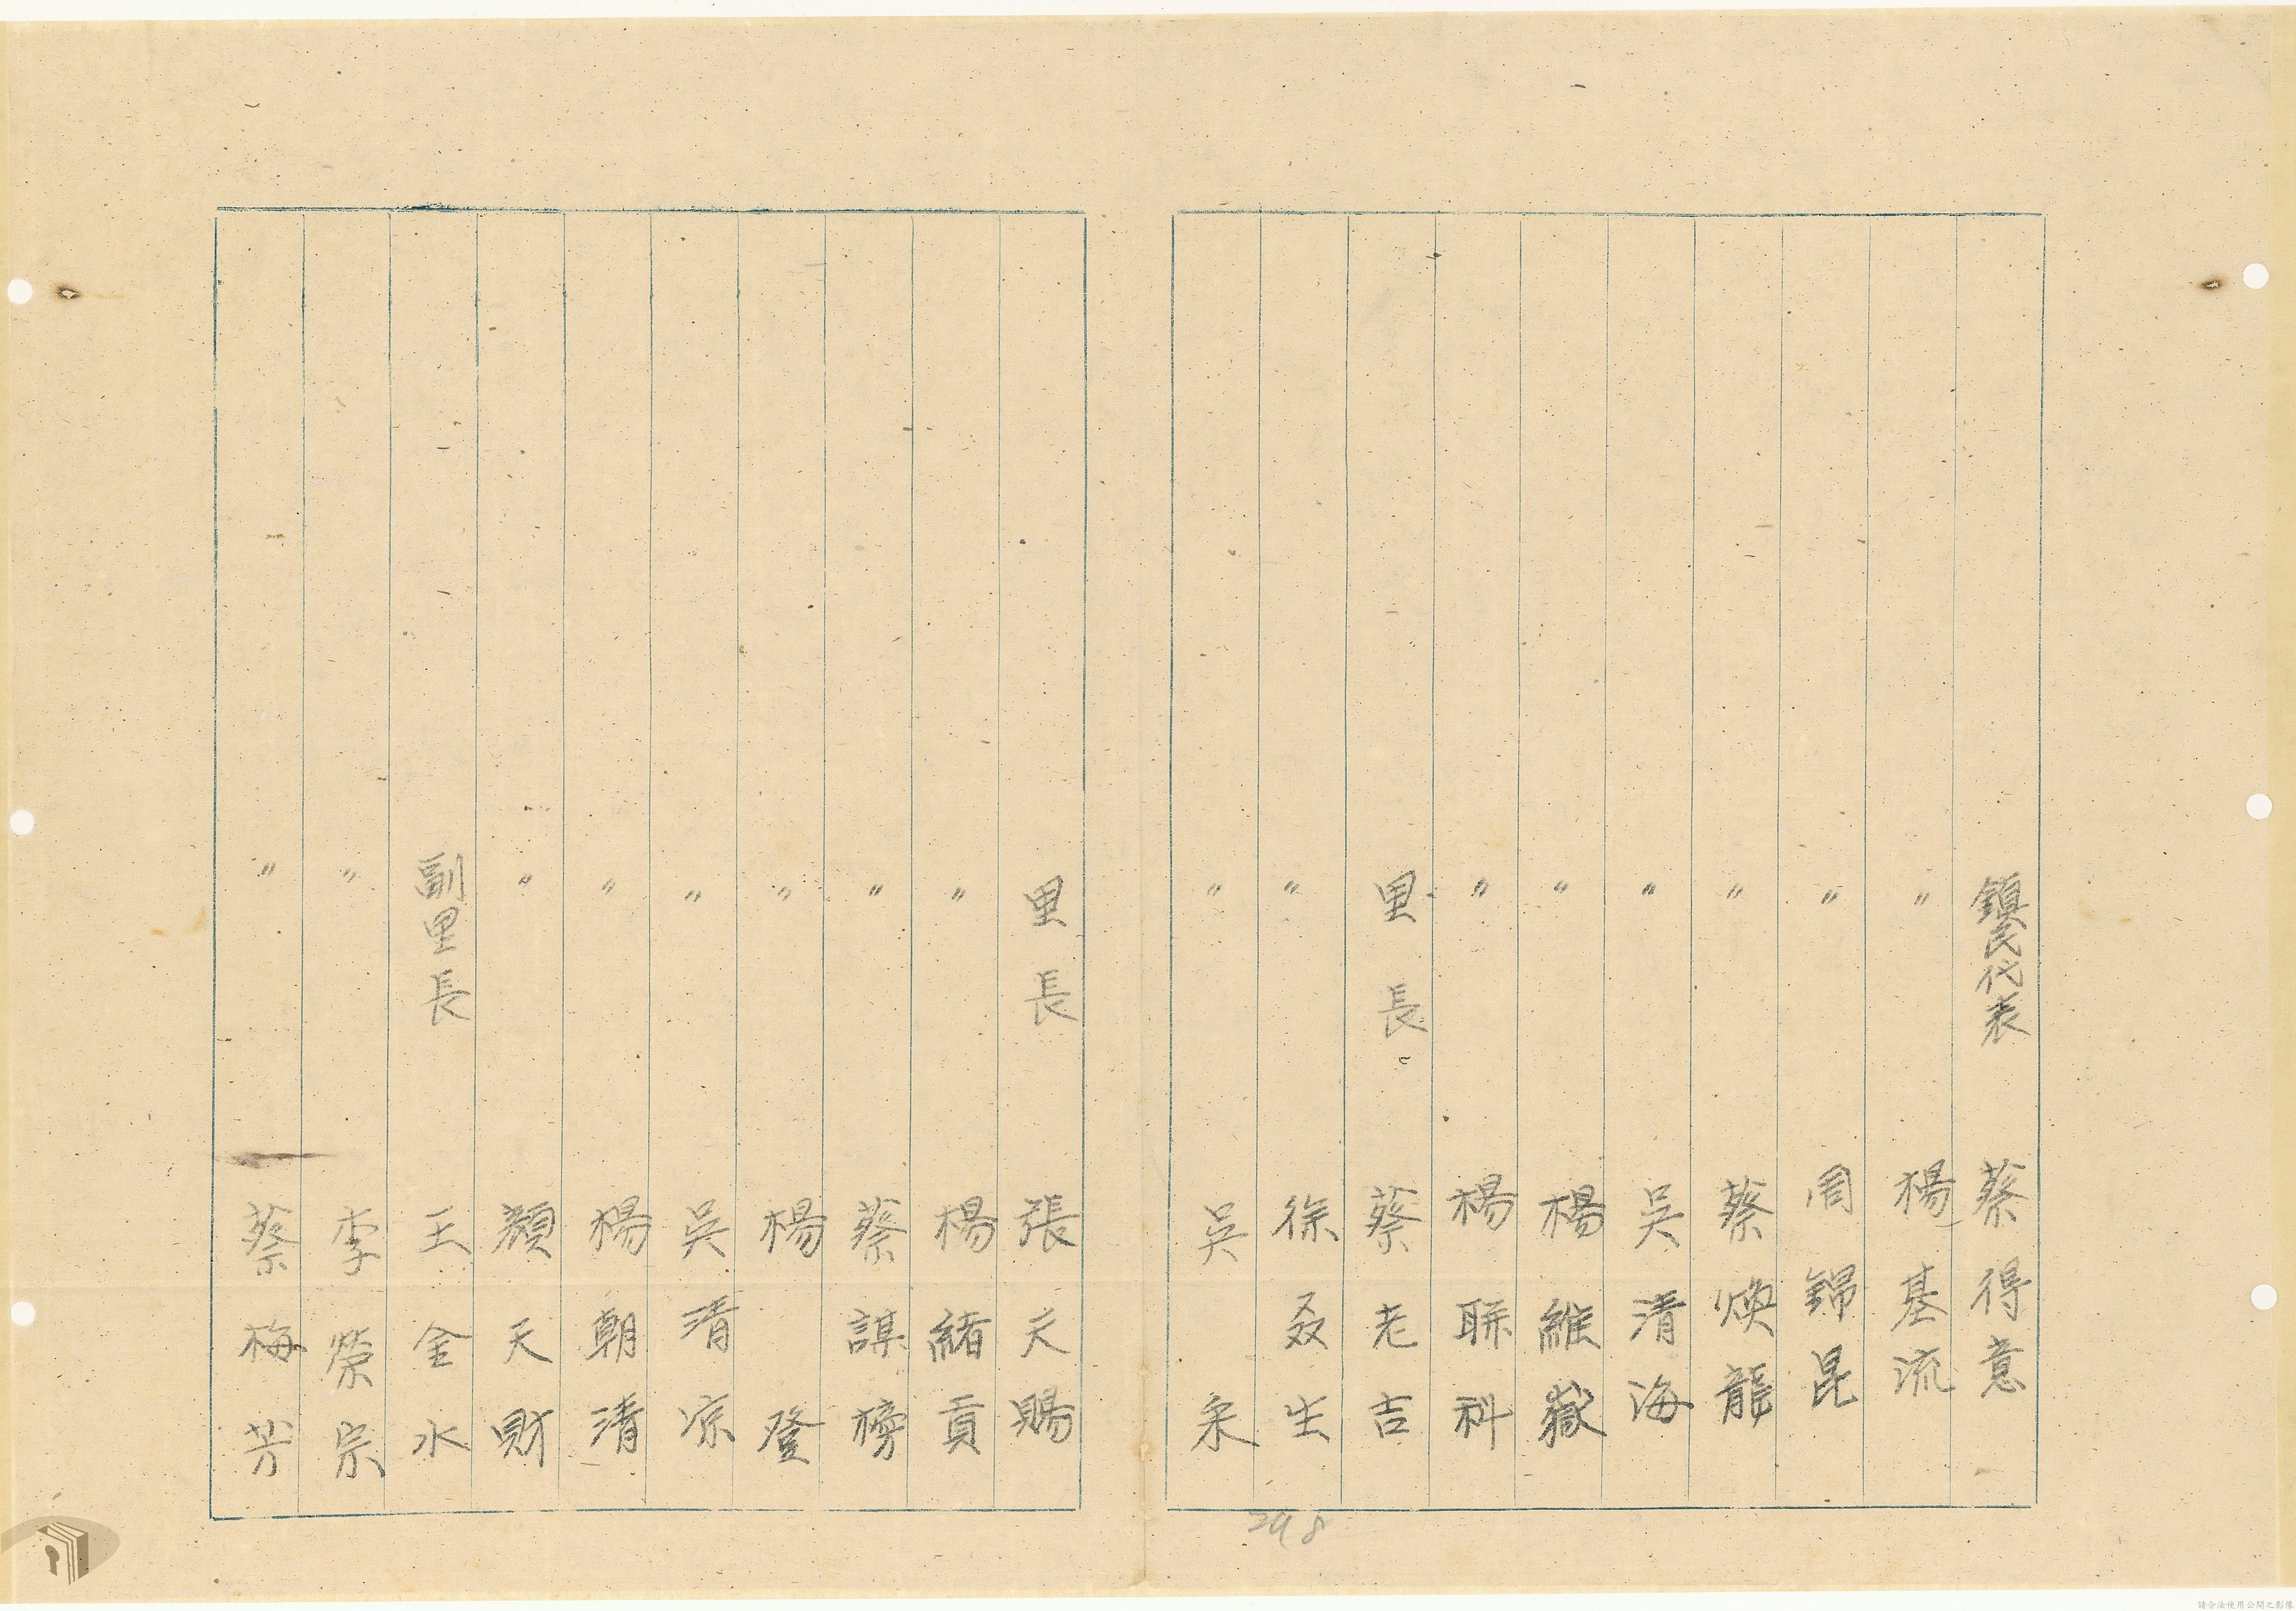 鎮民代表 蔡得意
〃 楊基流
〃 周錦昆
〃 蔡煥龍
〃 吳清海
〃 楊維嶽
〃 楊聯科
里長 蔡老吉
〃 徐双生
〃 吳來
298
里長 張天賜
〃 楊緒貢
〃 蔡謀榜
〃 楊登
〃 吳清凉
〃 楊朝清
〃 顏天財
副里長 王金水
〃 李榮宗
〃 蔡梅芳
請合法使用公開之影像